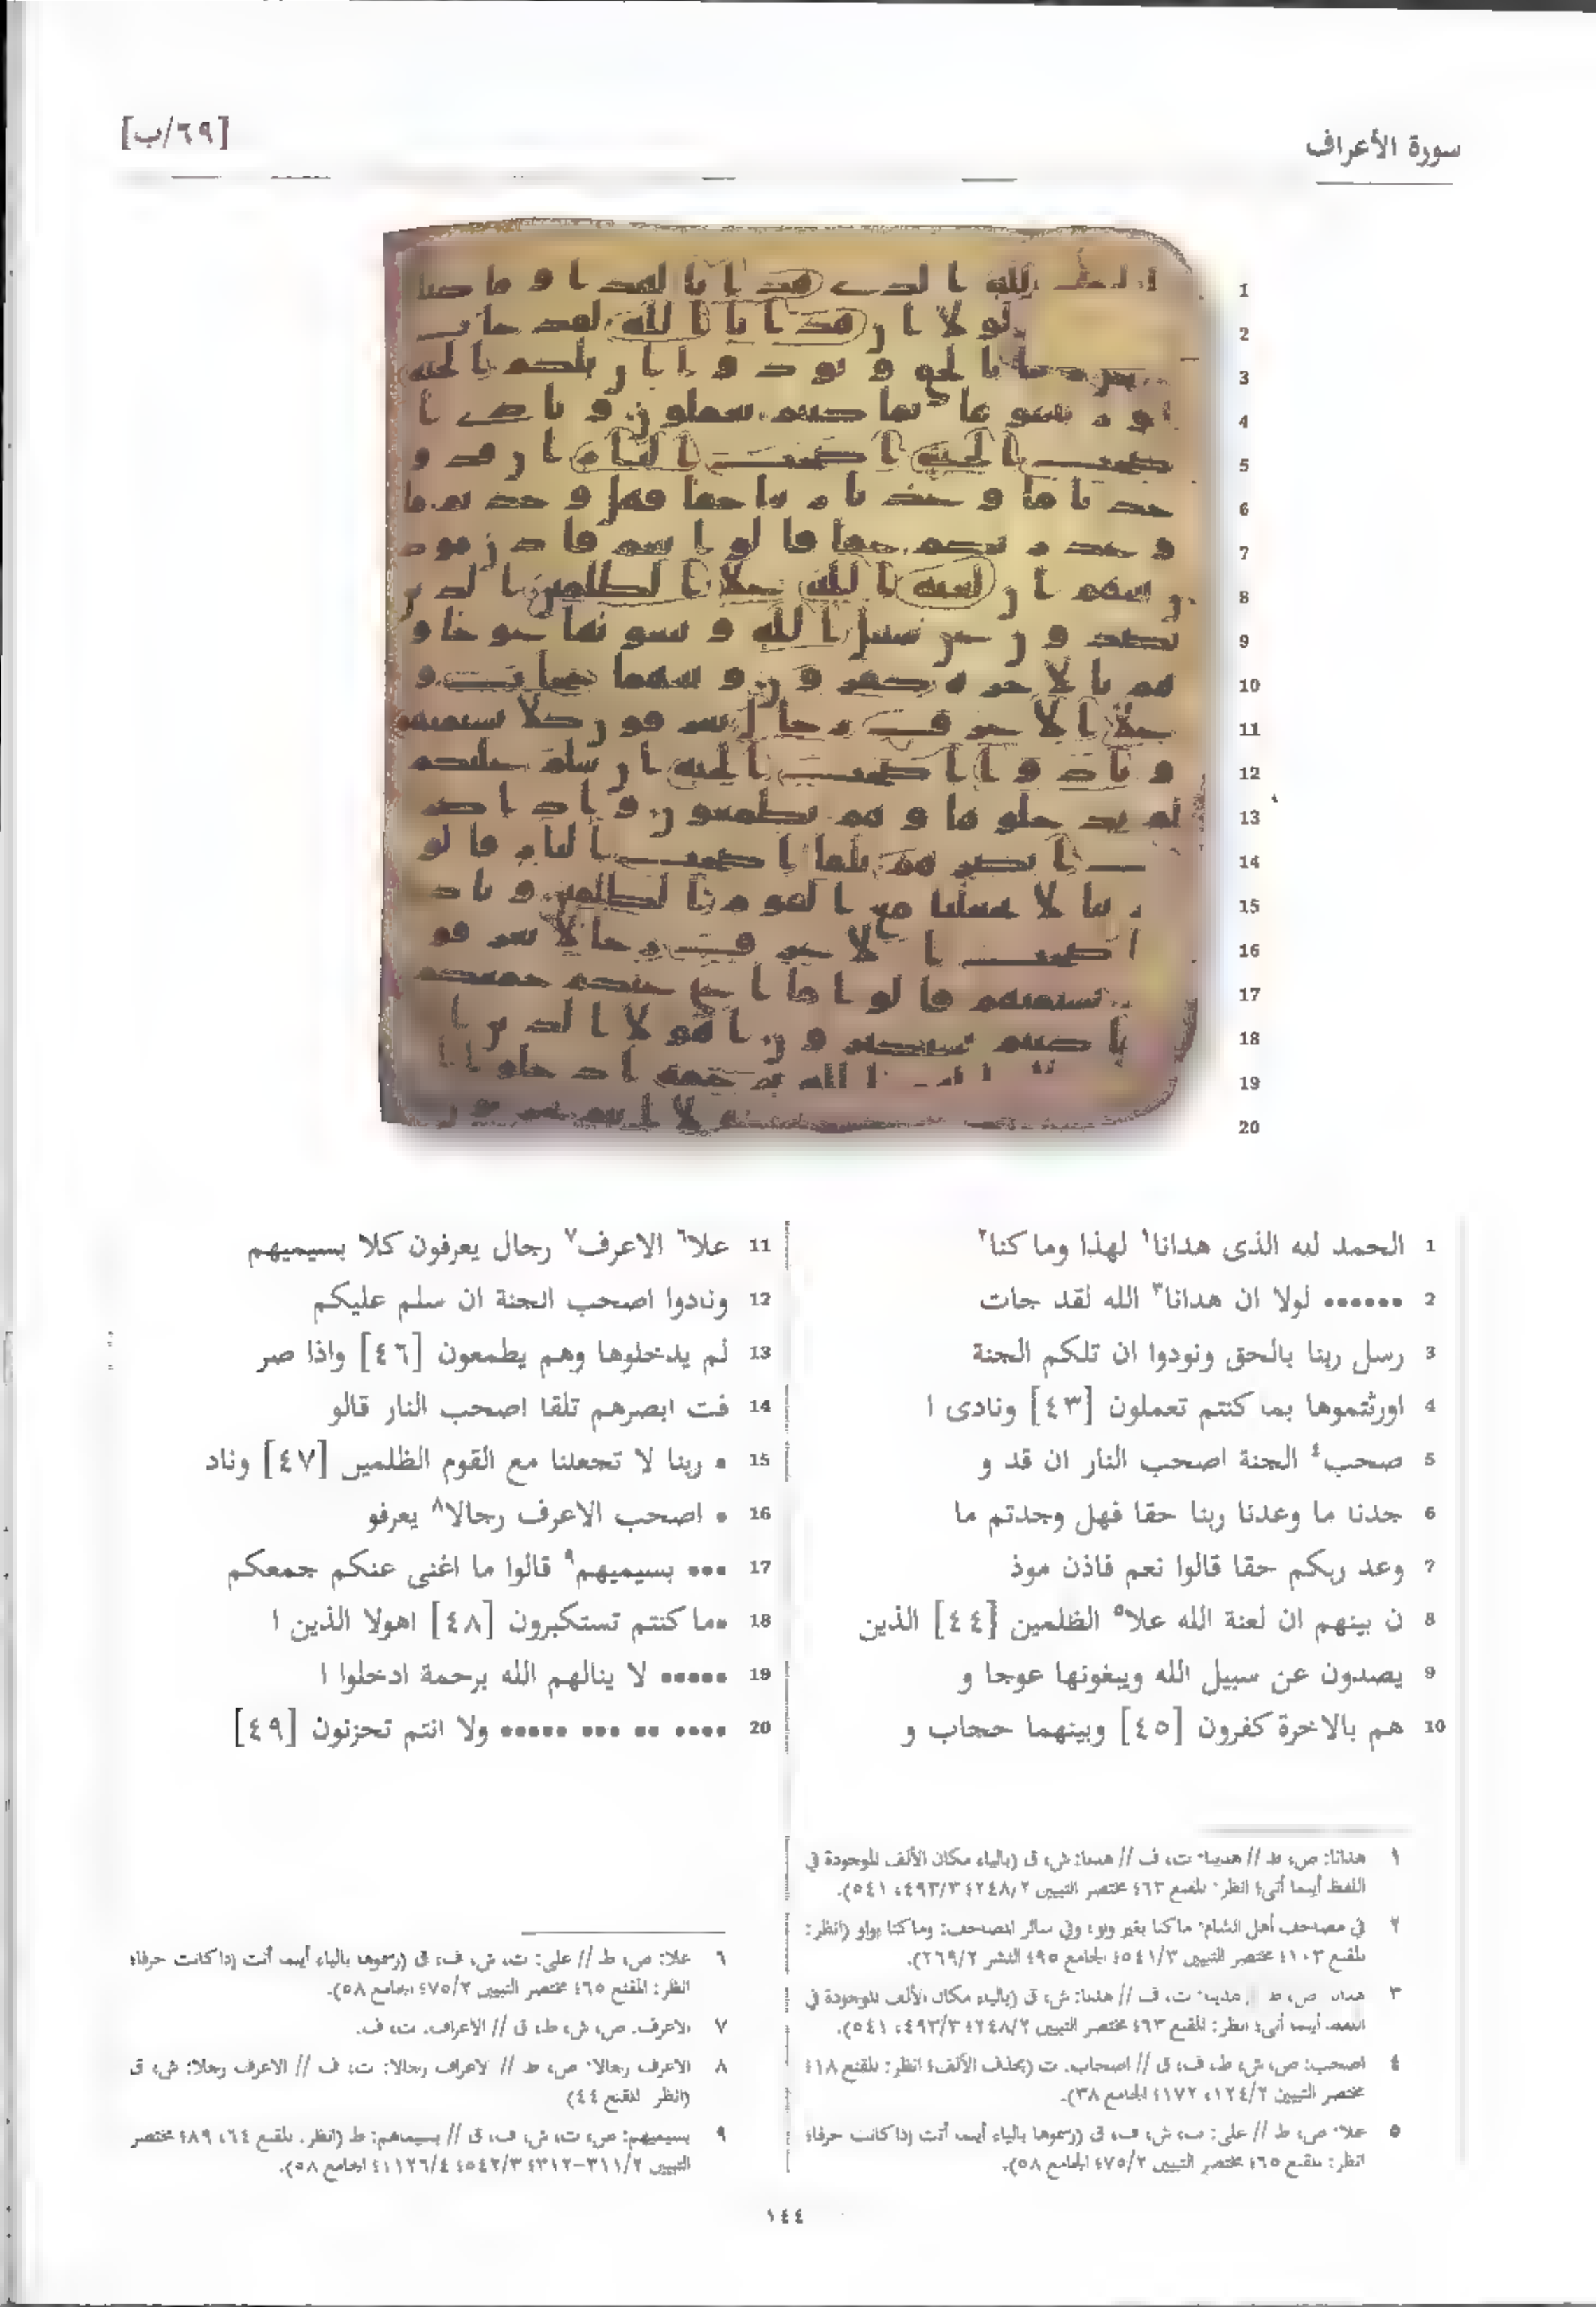 سورة الأعراف
[٦٩/ب]
1 الحمد لله الذى هدانا١ لهذا وما كنا٢
2 •••••• لولا ان هدانا٣ الله لقد جات
3 رسل ربنا بالحق ونودوا ان تلكم الجنة
4 اورثتموها بما كنتم تعملون [٤٣] ونادى ا
5 صحب٤ الجنة اصحب النار ان قد و
6 جدنا ما وعدنا ربنا حقا فهل وجدتم ما
7 وعد ربكم حقا قالوا نعم فاذن موذ
8 ن بينهم ان لعنة الله علا٥ الظلمين [٤٤] الذين
9 يصدون عن سبيل الله ويبغونها عوجا و
10 هم بالاخرة كفرون [٤٥] وبينهما حجاب و
11 علا٦ الاعرف٧ رجال يعرفون كلا بسيميهم
12 ونادوا اصحب الجنة ان سلم عليكم
13 لم يدخلوها وهم يطمعون [٤٦] واذا صر
14 فت ابصرهم تلقا اصحب النار قالو
15 • ربنا لا تجعلنا مع القوم الظلمين [٤٧] وناد
16 • اصحب الاعرف رجالا٨ يعرفو
17 ••• بسيميهم٩ قالوا ما اغنى عنكم جمعكم
18 •ما كنتم تستكبرون [٤٨] اهولا الذين ا
19 ••••• لا ينالهم الله برحمة ادخلوا ا
20 •••• •• ••• ••••• ولا انتم تحزنون [٤٩]
١ هدانا: ص، ط // هدينا: ت، ف // هدىنا: ش، ق (بالياء مكان الألف الموجودة في
اللفظ أينما أتى؛ انظر: المقنع ٤٦٣ مختصر التبيين ٢٤٨/٢؛ ٤٩٣/٣، ٥٤١).
٢ في مصاحف أهل الشام: ما كنا بغير واو، وفي سائر المصاحف: وما كنا بواو (انظر:
المقنع ١٠٣؛ مختصر التبيين ٥٤١/٣؛ الجامع ٩٥؛ النشر ٢٦٩/٢).
٣ ص، ط // هدينا: ت، ف // هدىنا: ش، ق (بالياء مكان الألف الموجودة في
اللفظ أينما أتى؛ انظر: المقنع ٤٦٣ مختصر التبيين ٢٤٨/٢؛ ٤٩٣/٣، ٥٤١).
٤ اصحب: ص، ش، ط، ف، ق // اصحاب: ت (بحذف الألف؛ انظر: المقنع ١٨؛
مختصر التبيين ١٢٤/٢، ١٧٢؛ الجامع ٣٨).
٥ علا: ص، ط // على: ت، ش، ف، ق (رسموها بالياء أينما أتت إذا كانت حرفا؛
انظر: المقنع ٦٥؛ مختصر التبيين ٧٥/٢؛ الجامع ٥٨).
٦ علا: ص، ط // على: ت، ش، ف، ق (رسموها بالياء أينما أتت إذا كانت حرفا؛
انظر: المقنع ٦٥؛ مختصر التبيين ٧٥/٢؛ الجامع ٥٨).
٧ الاعرف: ص، ش، ط، ق // الاعراف: ت، ف.
٨ الاعرف رجالا: ص، ط // الاعراف رجالا: ت، ف // الاعرف رجلا: ش، ق
(انظر المقنع ٤٤)
٩ بسيميهم: ص، ت، ش، ف، ق // بسيماهم: ط (انظر: المقنع ٦٤، ٨٩؛ مختصر
التبيين ٣١١/٢-٣١٢؛ ٥٤٢/٣؛ ١١٢٦/٤؛ الجامع ٥٨).
١٤٤